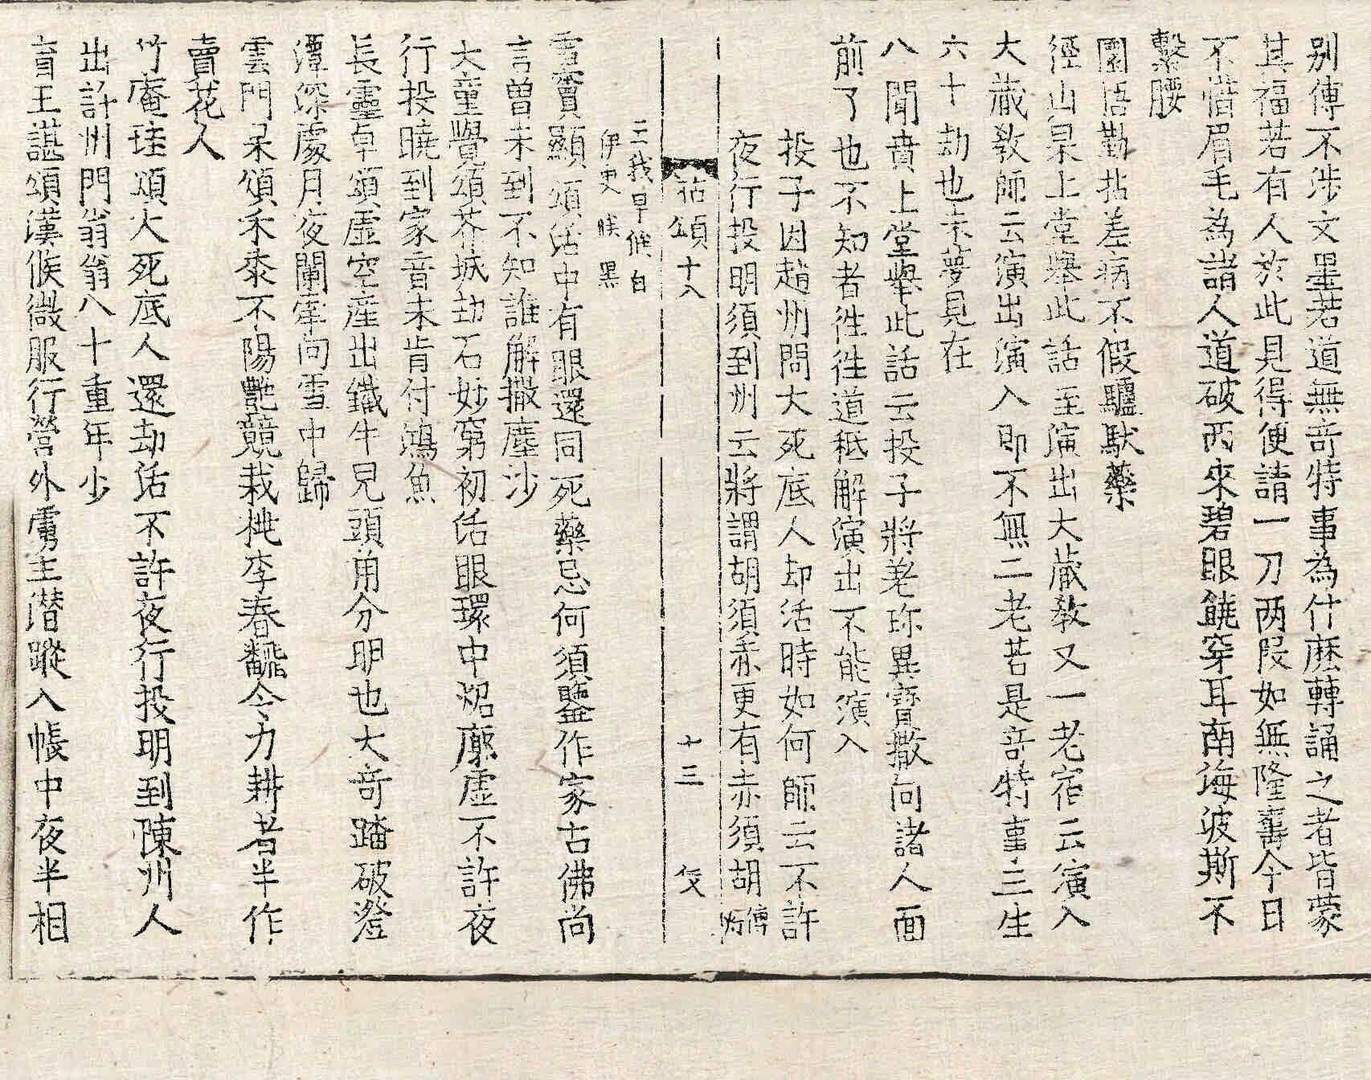 別傳不涉文墨若道無竒特事為什麽轉誦之者皆蒙
其福若有人於此見得便請一刀两叚如無隆壽今日
不惜眉毛為諸人道破西來碧眼鐃穿耳南海波斯不
繫腰
圜悟勤拈差病不假驢䭾藥
徑山杲上堂舉此話至演出大藏敎又一老宿云演入
大藏敎師云演出演入即不無二老若是竒特事三生
六十劫也未夢見在
八聞賁上堂舉此話云投子將差珎異寳撒向諸人面
前了也不知者徃徃道秪解演出不能演入
投子因趙州問大死底人却活時如何師云不許
夜行投明須到州云將謂胡須赤更有赤須胡傳所
拈頌十八
十三
二我早候白
伊更候黑
雪竇顯頌活中有眼還同死藥忌何須鑒作家古佛尚
言曽未到不知誰解撒塵沙
大童覺頌芥城劫石妙窮初活眼環中炤廓虛不許夜
行投曉到家音未肯付鴻魚
長靈卓頌虛空産出鐵牛兒頭角分明也大竒踏破澄
潭深處月夜闌牽向雪中歸
雲門杲頌禾黍不陽艷競栽桃李春飜令力耕者半作
賣花人
竹庵珪頌大死底人還劫活不許夜行投明到陳州人
出許州門翁翁八十重年少
育王諶頌漢候微服行營外虜主潛蹤入帳中夜半相